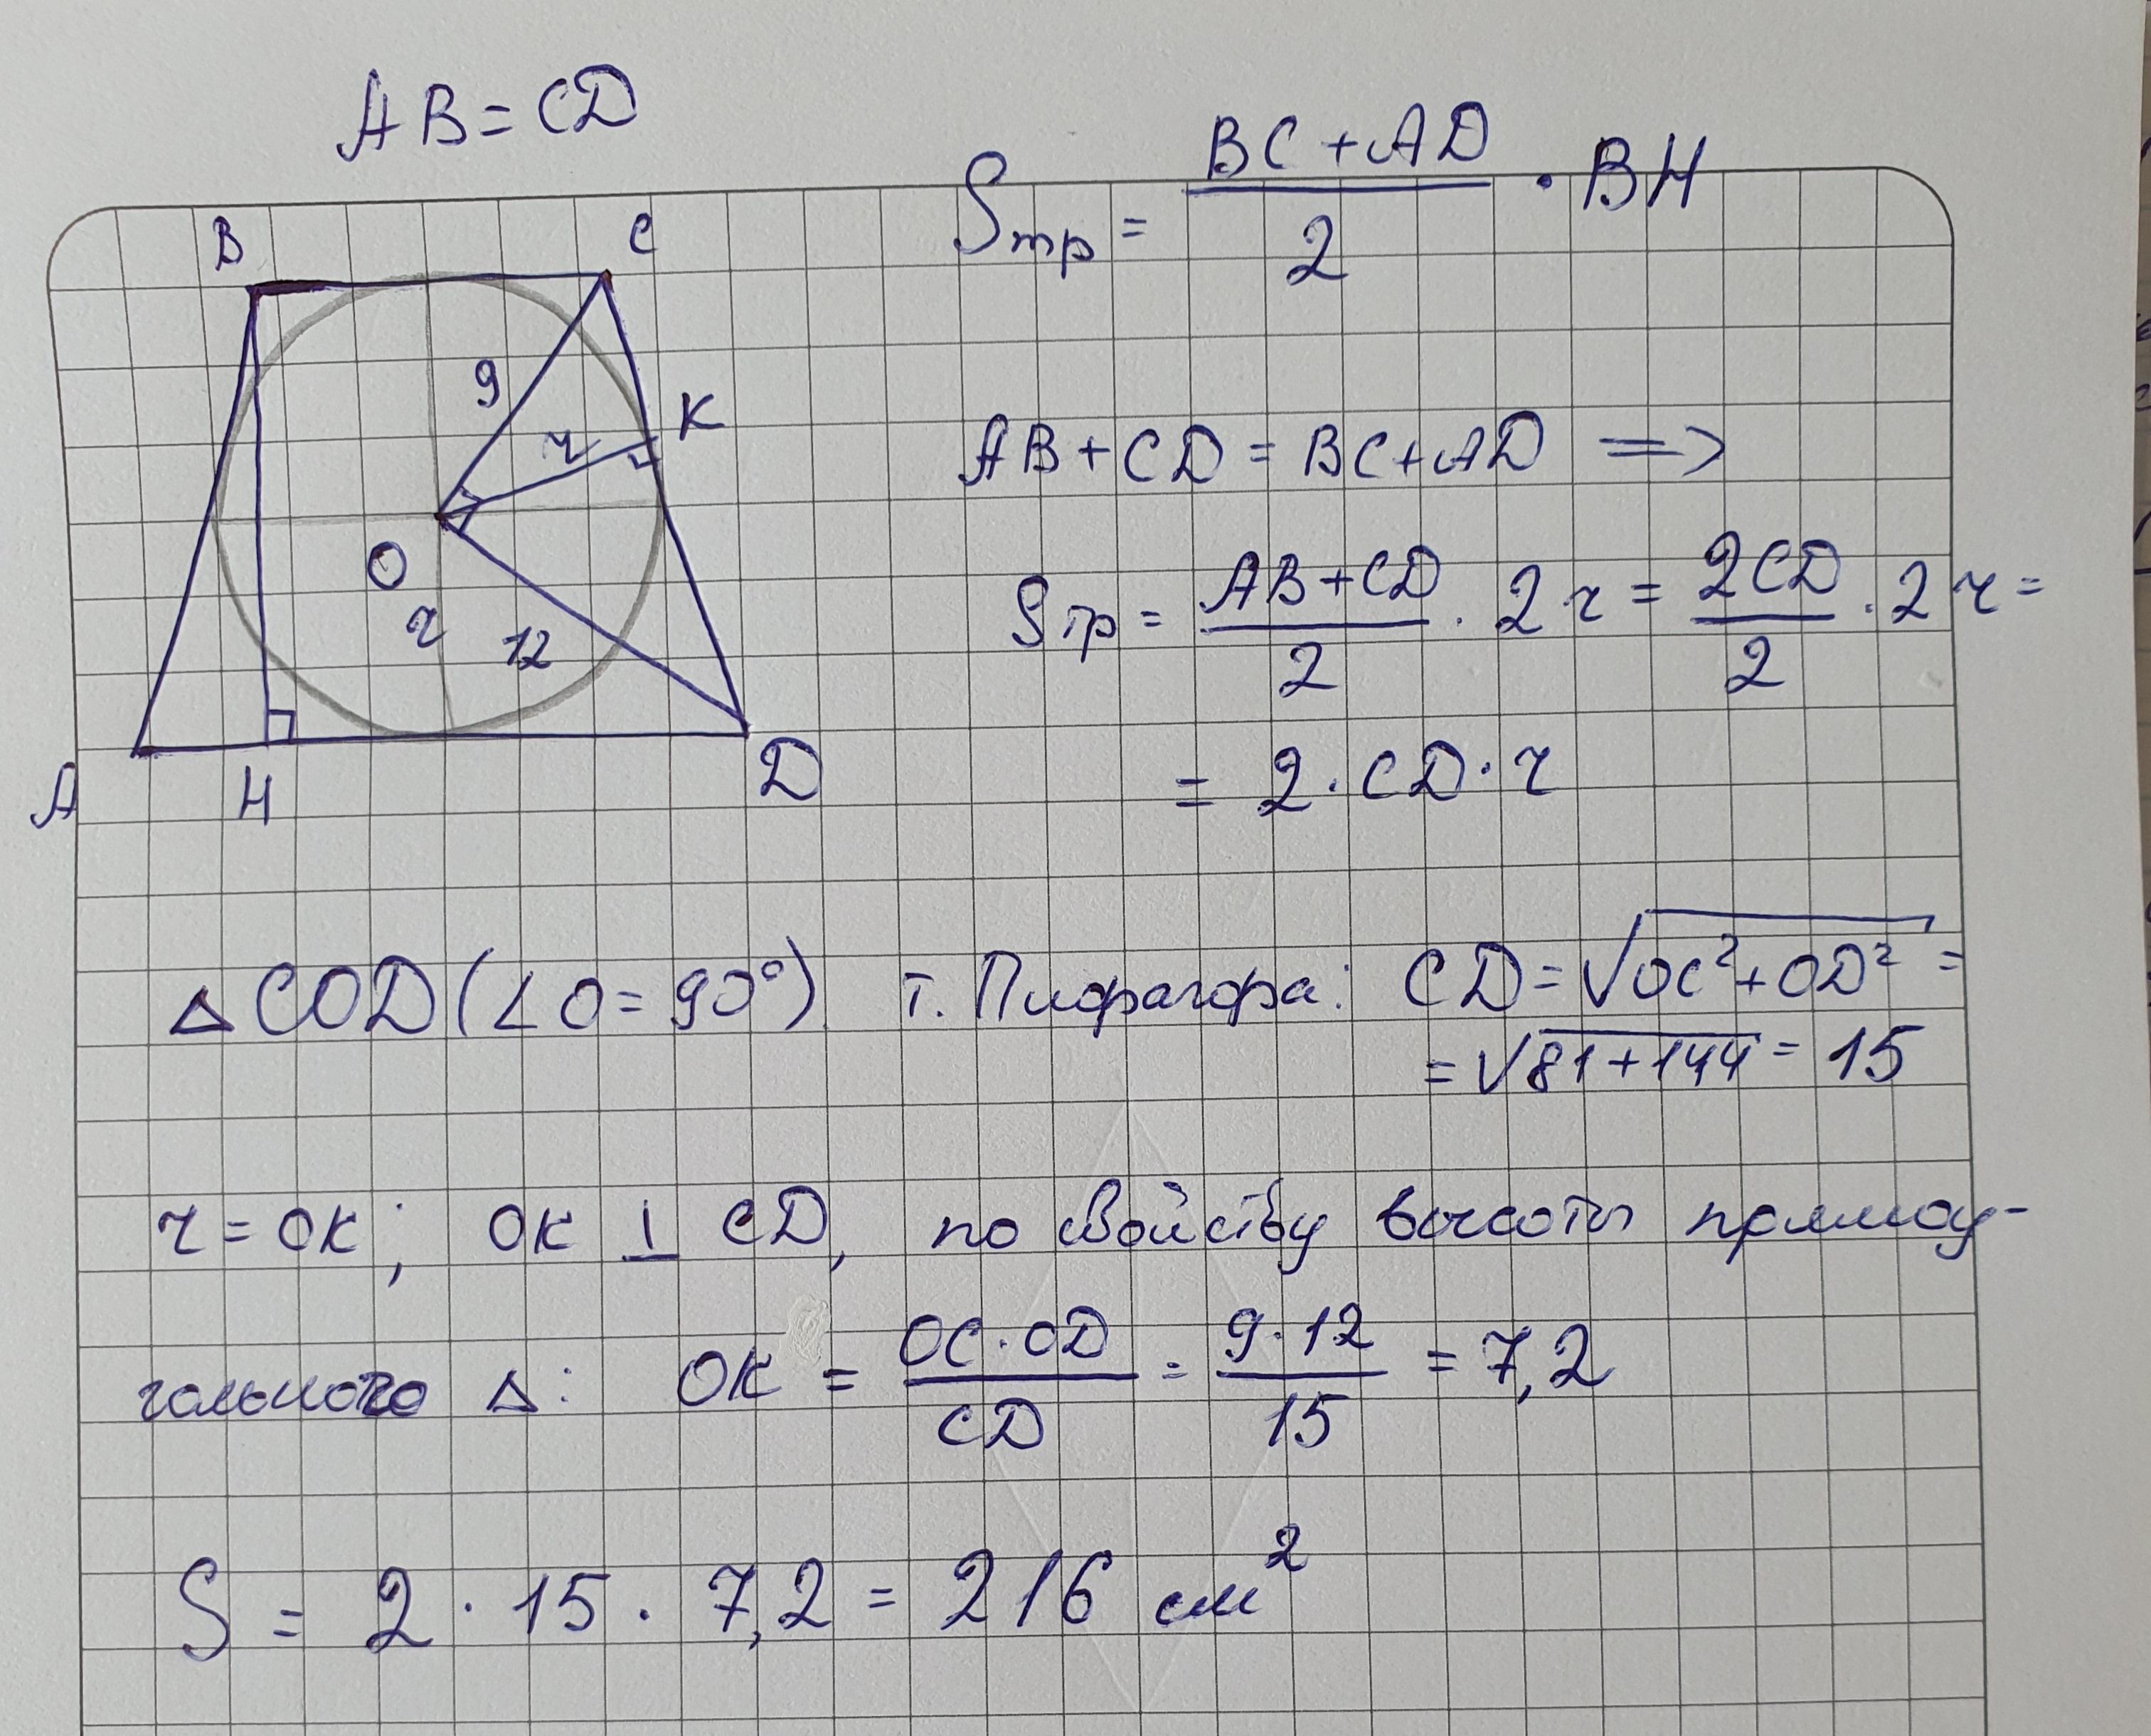 AB = CD
Sтр = (BC + AD)/2 · BH
B C
9 K
r
O
r 12
A H D
AB + CD = BC + AD =>
Sтр = (AB + CD)/2 · 2r = 2CD/2 · 2r =
= 2 · CD · r
△ COD (∠O = 90°) т. Пифагора: CD = √(OC² + OD²) =
= √(81 + 144) = 15
r = OK; OK ⊥ CD, по свойству высоты прямоу-
гольного △: OK = (OC · OD)/CD = (9 · 12)/15 = 7,2
S = 2 · 15 · 7,2 = 216 см²